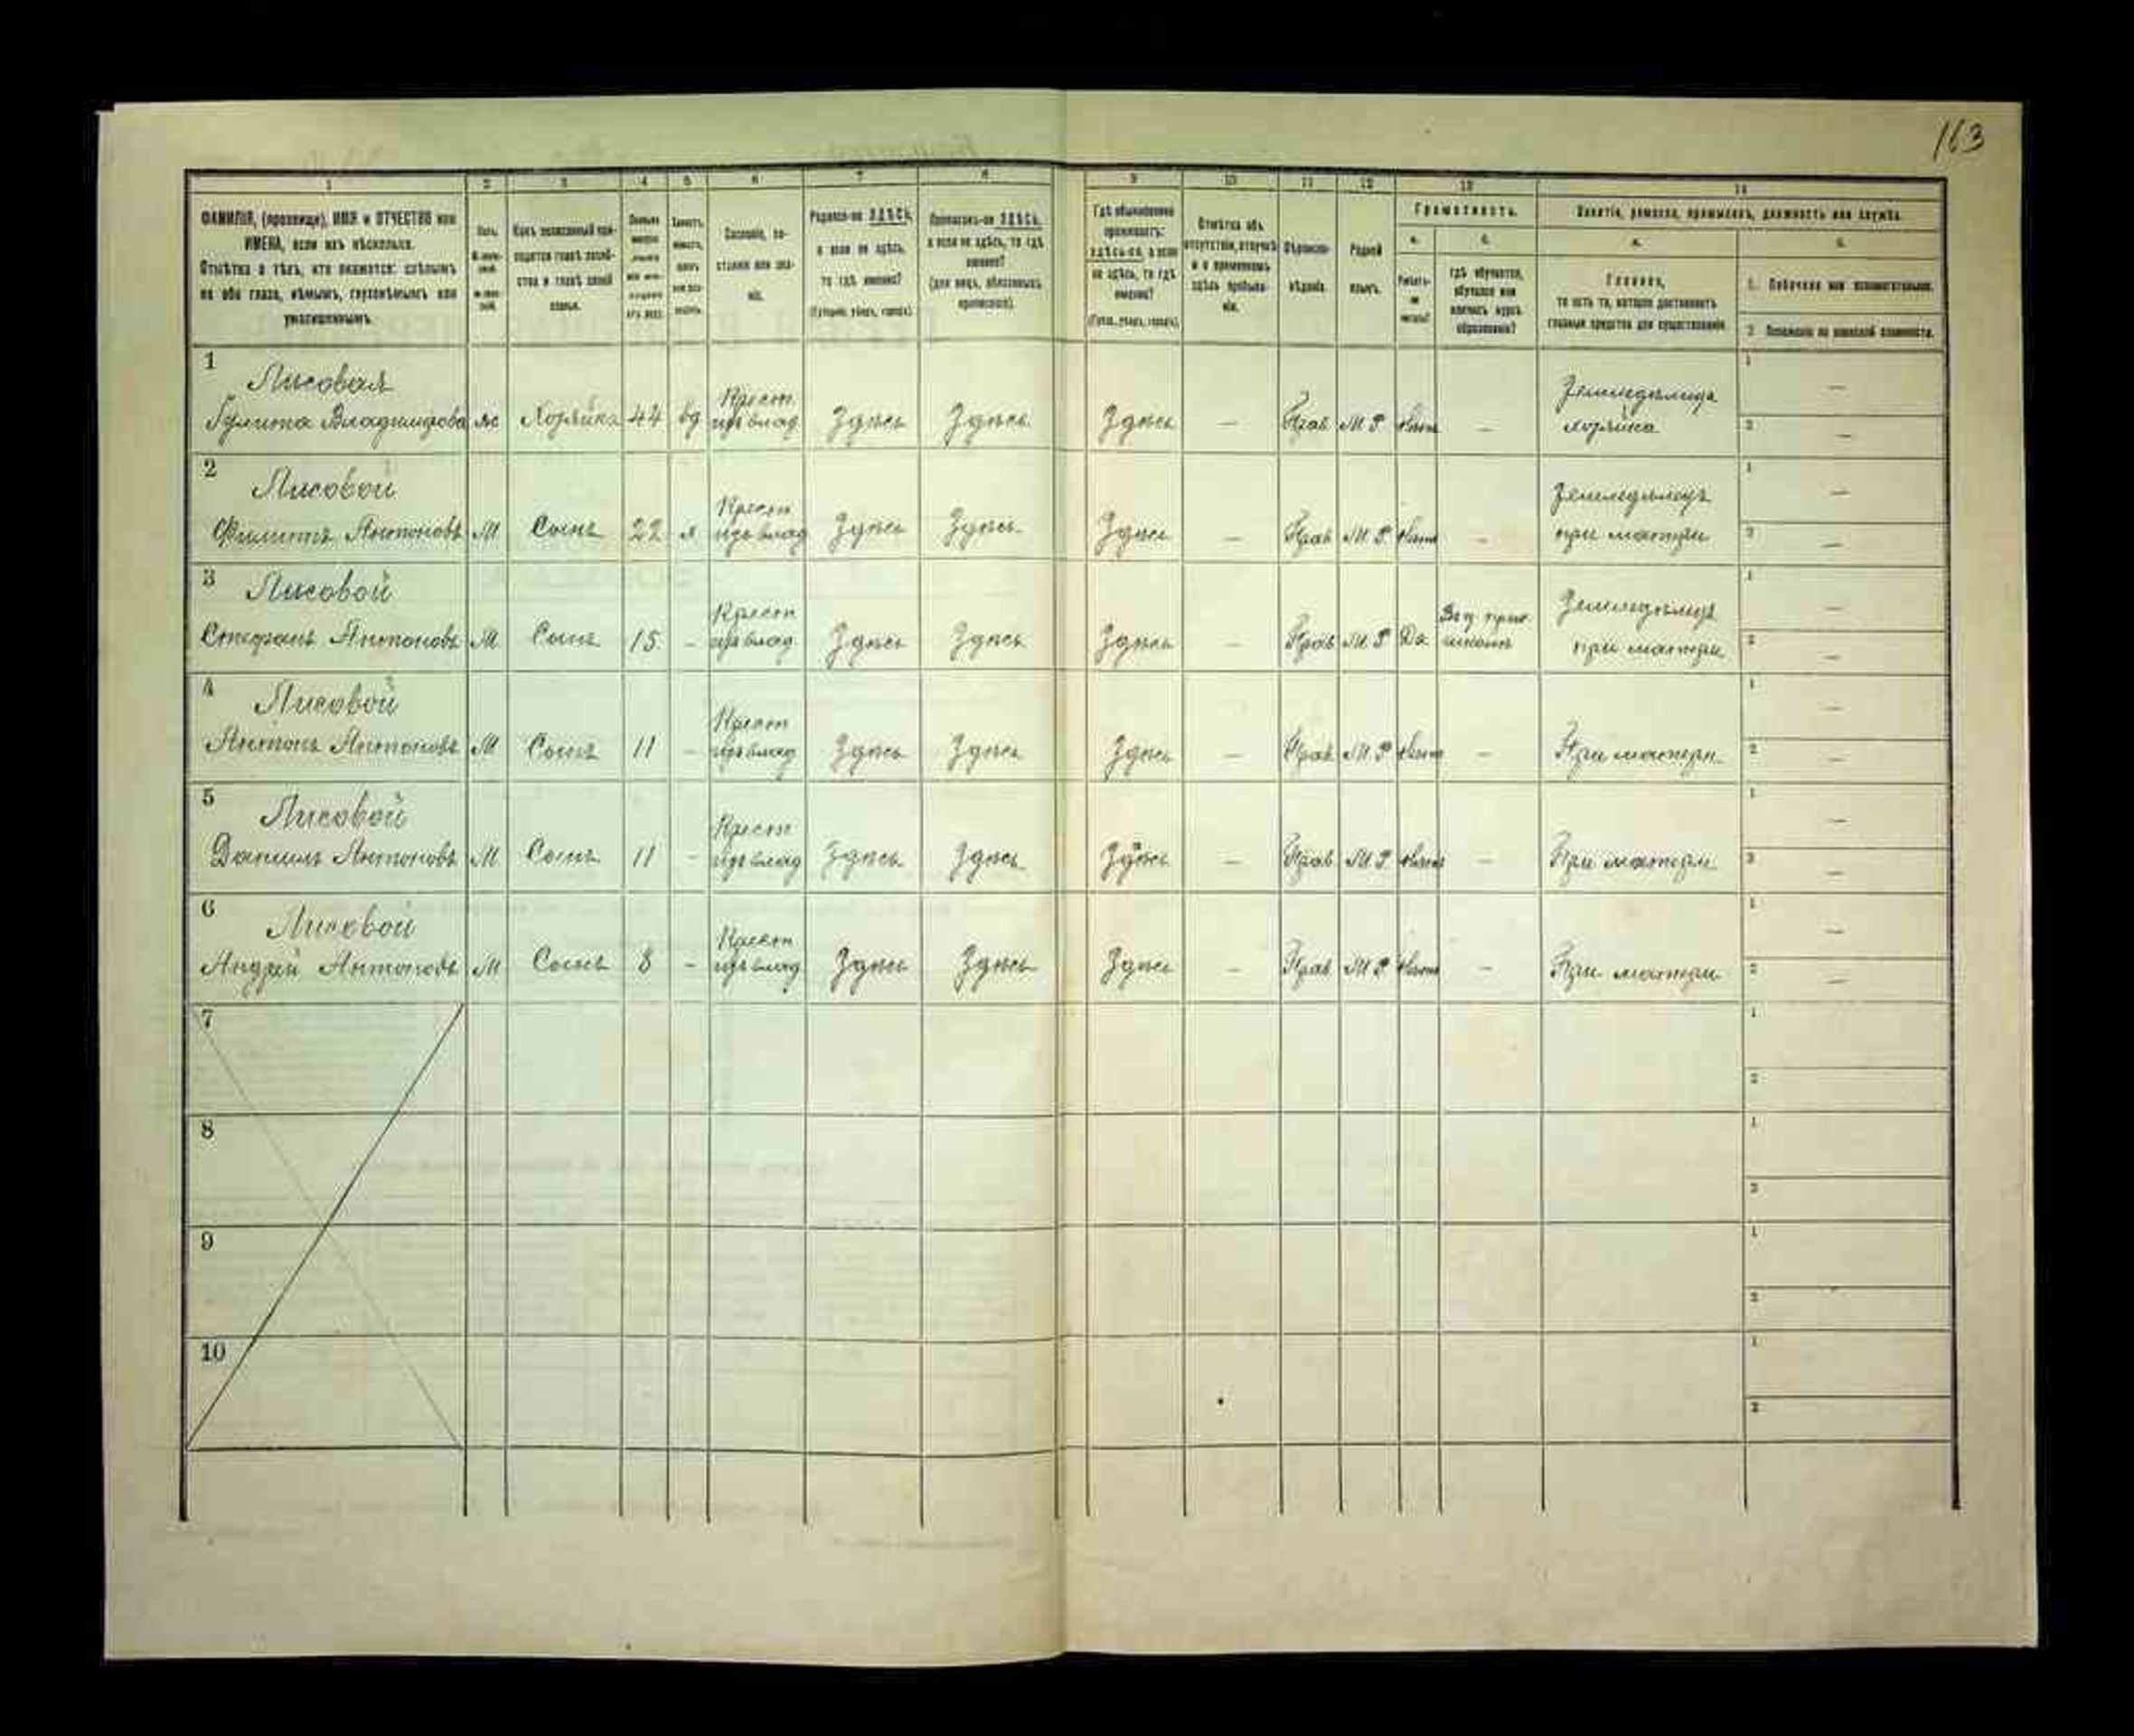 163
1 2 3 4 5 6 7 8 9 10 11 12 13 14
ФАМИЛІЯ, (прозвище), ИМЯ и ОТЧЕСТВО или
ИМЕНА, если ихъ нѣсколько.
Отмѣтка о тѣхъ, кто окажется: слѣпымъ
на оба глаза, нѣмымъ, глухонѣмымъ или
умалишеннымъ.
Полъ.
Какъ записанный при-
ходится главѣ хозяй-
ства и главѣ своей
семьи.
Сословіе, со-
стояніе или зва-
ніе.
Родился-ли ЗДѢСЬ,
а если не здѣсь,
то гдѣ именно?
(Губернія, уѣздъ, городъ).
Приписанъ-ли ЗДѢСЬ,
а если не здѣсь, то гдѣ
именно?
(для лицъ, обязанныхъ
припискою).
Гдѣ обыкновенно
проживаетъ:
здѣсь-ли, а если
не здѣсь, то гдѣ
именно?
(Губ., уѣздъ, городъ).
Отмѣтка объ
отсутствіи, отлучкѣ
и о временномъ
здѣсь пребыва-
ніи.
Вѣроиспо-
вѣданіе.
Родной
языкъ.
Грамотность.
а. б.
Умѣетъ-
ли
читать?
гдѣ обучается,
обучался или
кончилъ курсъ
образованія?
Занятіе, ремесло, промыселъ, должность или служба.
а. б.
Главное,
то есть то, которое доставляетъ
главныя средства для существованія.
1. Побочное или вспомогательное.
2. Положеніе по воинской повинности.
1
Лисовая
Гулита Владимірова ж Хозяйка 44 вд Крест. изъ влад Здѣсь Здѣсь Здѣсь — Прав М Р Нѣтъ — Земледѣлица хозяйка 1 — 2 —
2
Лисовой
Филиппъ Антоновъ М Сынъ 22 х Крест изъ влад Здѣсь Здѣсь Здѣсь — Прав М Р Нѣтъ — Земледѣлецъ при матери 1 — 2 —
3
Лисовой
Стефанъ Антоновъ М Сынъ 15. - Крест изъ влад Здѣсь Здѣсь Здѣсь — Прав М Р Да школѣ Земледѣлецъ при матери 1 — 2 —
4
Лисовой
Антонъ Антоновъ М Сынъ 11 - Крест изъ влад Здѣсь Здѣсь Здѣсь — Прав М Р Нѣтъ — При матери 1 — 2 —
5
Лисовой
Даніилъ Антоновъ М Сынъ 11 - Крест изъ влад Здѣсь Здѣсь Здѣсь — Прав М Р Нѣтъ — При матери 1 — 2 —
6
Лисовой
Андрей Антоновъ М Сынъ 8 - Крест изъ влад Здѣсь Здѣсь Здѣсь — Прав М Р Нѣтъ — При матери 1 — 2 —
7 1 2
8 1 2
9 1 2
10 1 2